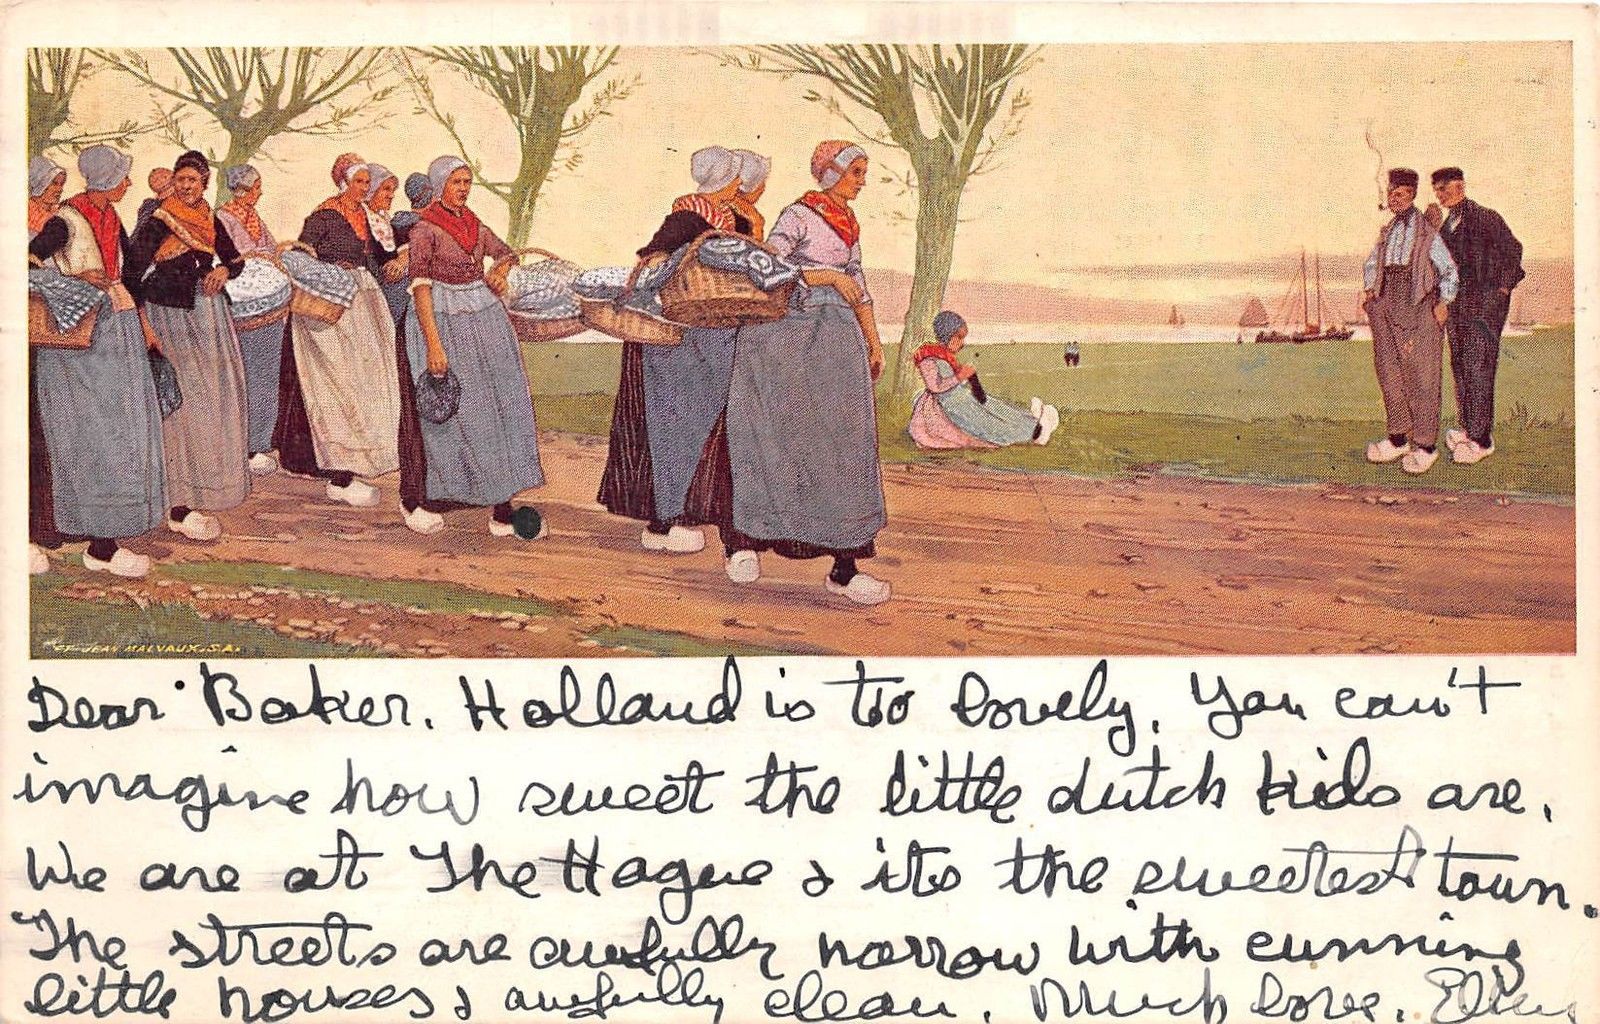 ET. JEAN MALVAUX. S.A.
Dear Baker. Holland is too lovely. You can't
imagine how sweet the little dutch kids are.
We are at The Hague & its the sweetest town.
The streets are awfully narrow with cunning
little houses & awfully clean. Much love. Ellen